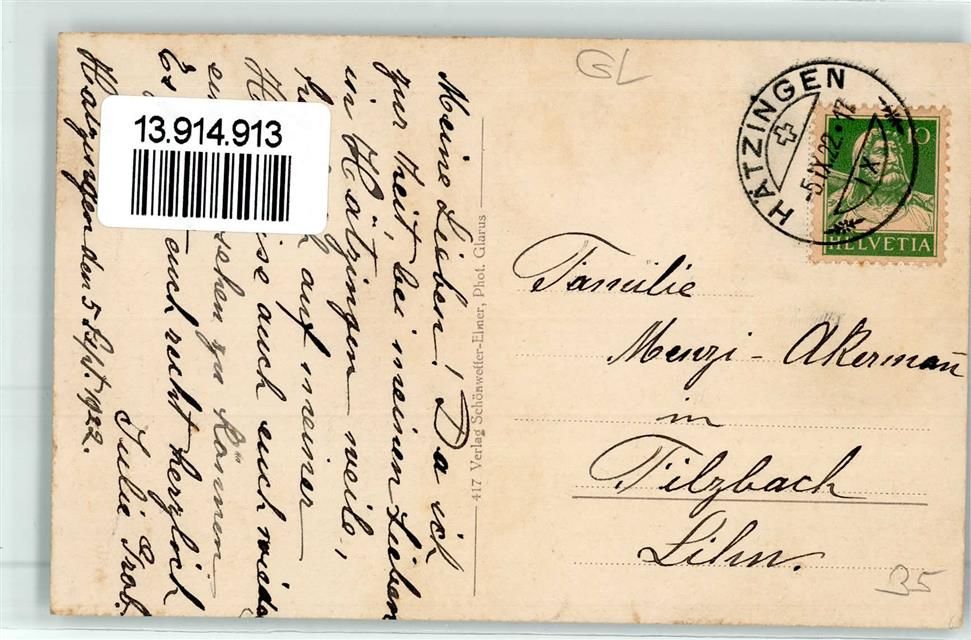 13.914.913
GL
HÄTZINGEN
-5.IX.22.-17
X
10
HELVETIA
Meine Lieben! Da ich
zur Zeit bei meinen Lieben
in Hätzingen weile,
auf meiner
se auch euch wieder
sehen zu können
euch recht herzlich
Hätzingen den 5 Sept. 1922.
Julie
417 Verlag Schönwetter-Elmer, Phot. Glarus
Familie
Menzi - Akermañ
in
Filzbach
Lihn.
B5